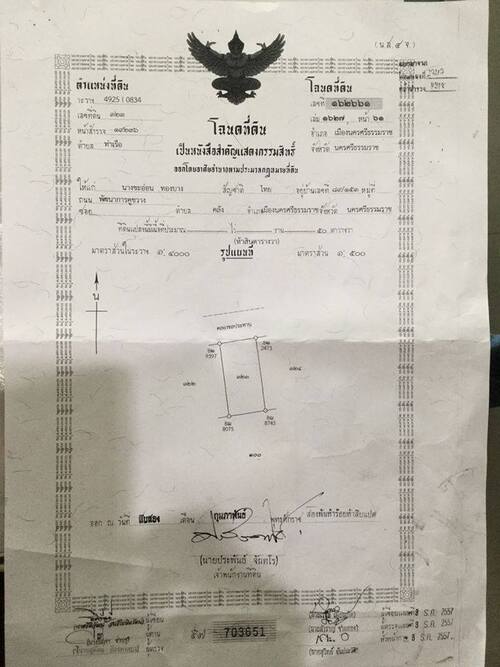 (น.ส. ๔ จ)
ตำแหน่งที่ดิน
ระวาง 4925 I 0834
เลขที่ดิน ๑๒๓
หน้าสำรวจ
ตำบล ท่าเรือ
โฉนดที่ดิน
เลขที่ ๑๖๒๖๖๑
เล่ม ๑๖๒๗ หน้า ๖๑
อำเภอ เมืองนครศรีธรรมราช
จังหวัด นครศรีธรรมราช
โฉนดที่ดิน
เป็นหนังสือสำคัญแสดงกรรมสิทธิ์
ออกโดยอาศัยอำนาจตามประมวลกฎหมายที่ดิน
ให้แก่ นางชะอ้อน ทองบาง สัญชาติ ไทย อยู่บ้านเลขที่ หมู่ที่
ถนน พัฒนาการคูขวาง
ซอย ตำบล คลัง อำเภอเมืองนครศรีธรรมราช จังหวัด นครศรีธรรมราช
ที่ดินแปลงนี้มีเนื้อที่ประมาณ ไร่ งาน ๕๐ ตารางวา
(ห้าสิบตารางวา)
มาตราส่วนในระวาง ๑: ๔๐๐๐ รูปแผนที่ มาตราส่วน ๑: ๕๐๐
น
คลองชลประทาน
9397
2473
๑๒๒
๑๒๓
๑๒๔
8075
8743
๑๐๐
ออก ณ วันที่ ยี่สิบสอง เดือน กุมภาพันธ์ พุทธศักราช สองพันห้าร้อยห้าสิบแปด
(นายประพันธ์ จันทโร)
เจ้าพนักงานที่ดิน
703651
8 ธ.ค. 2557
8 ธ.ค. 2557
8 ธ.ค. 2557